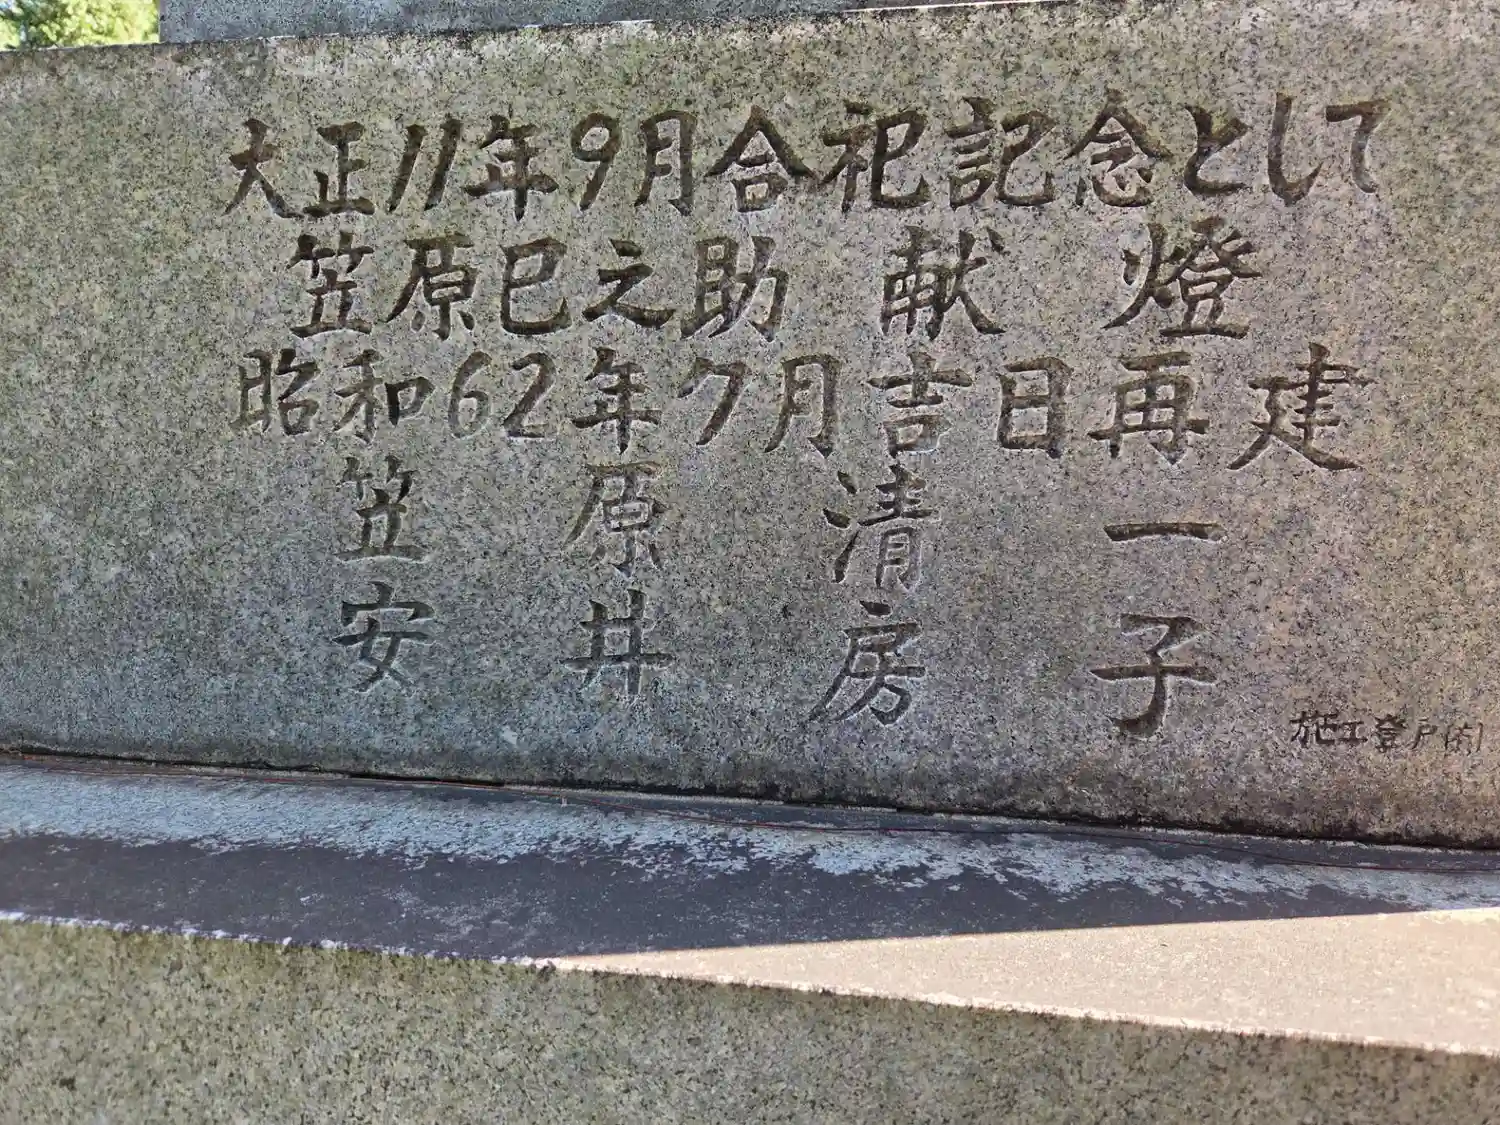 大正11年9月合祀記念として
笠原巳之助 献燈
昭和62年7月吉日再建
笠原清一
安井房子
施工登戸㈲